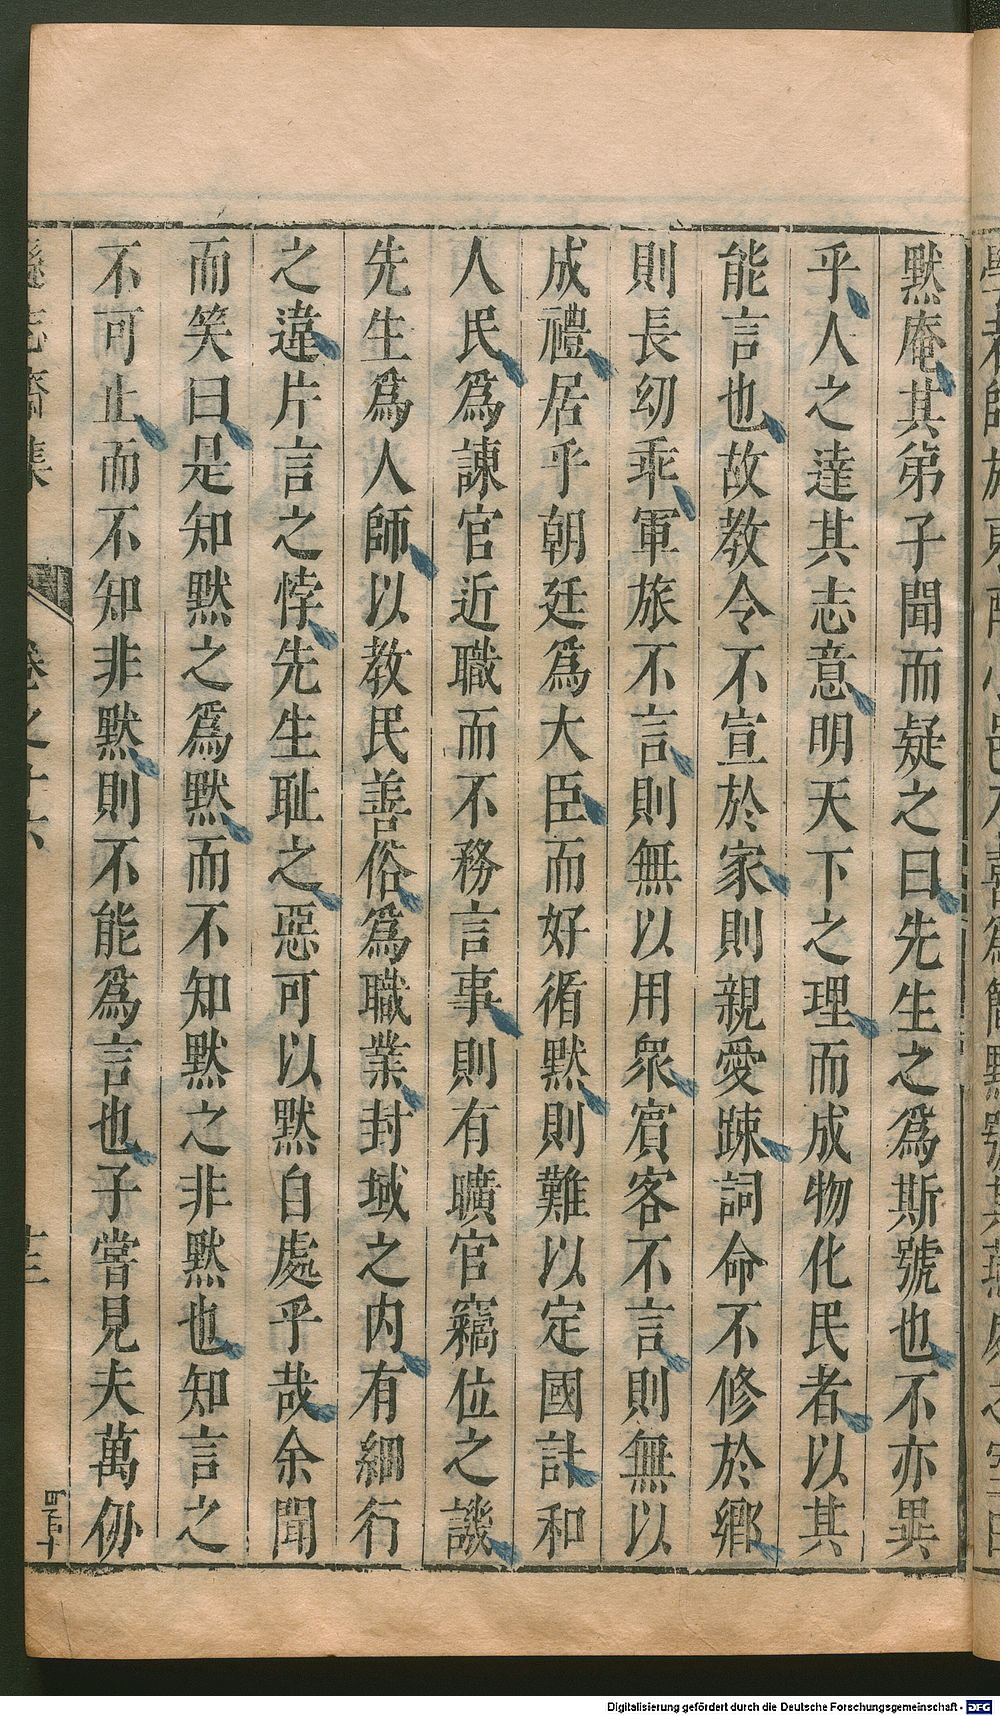 默庵其弟子聞而疑之曰先生之爲斯號也不亦異
乎人之達其志意明天下之理而成物化民者以其
能言也故教令不宣於家則親愛踈詞命不修於鄉
則長幼乖軍旅不言則無以用衆賓客不言則無以
成禮居乎朝廷爲大臣而好循默則難以定國計和
人民爲諫官近職而不務言事則有曠官竊位之譏
先生爲人師以教民善俗爲職業封域之内有細行
之違片言之悖先生耻之惡可以默自處乎哉余聞
而笑曰是知默之爲默而不知默之非默也知言之
不可止而不知非默則不能爲言也子嘗見夫萬仞
遜志齋集 卷之十六
Digitalisierung gefördert durch die Deutsche Forschungsgemeinschaft - DFG